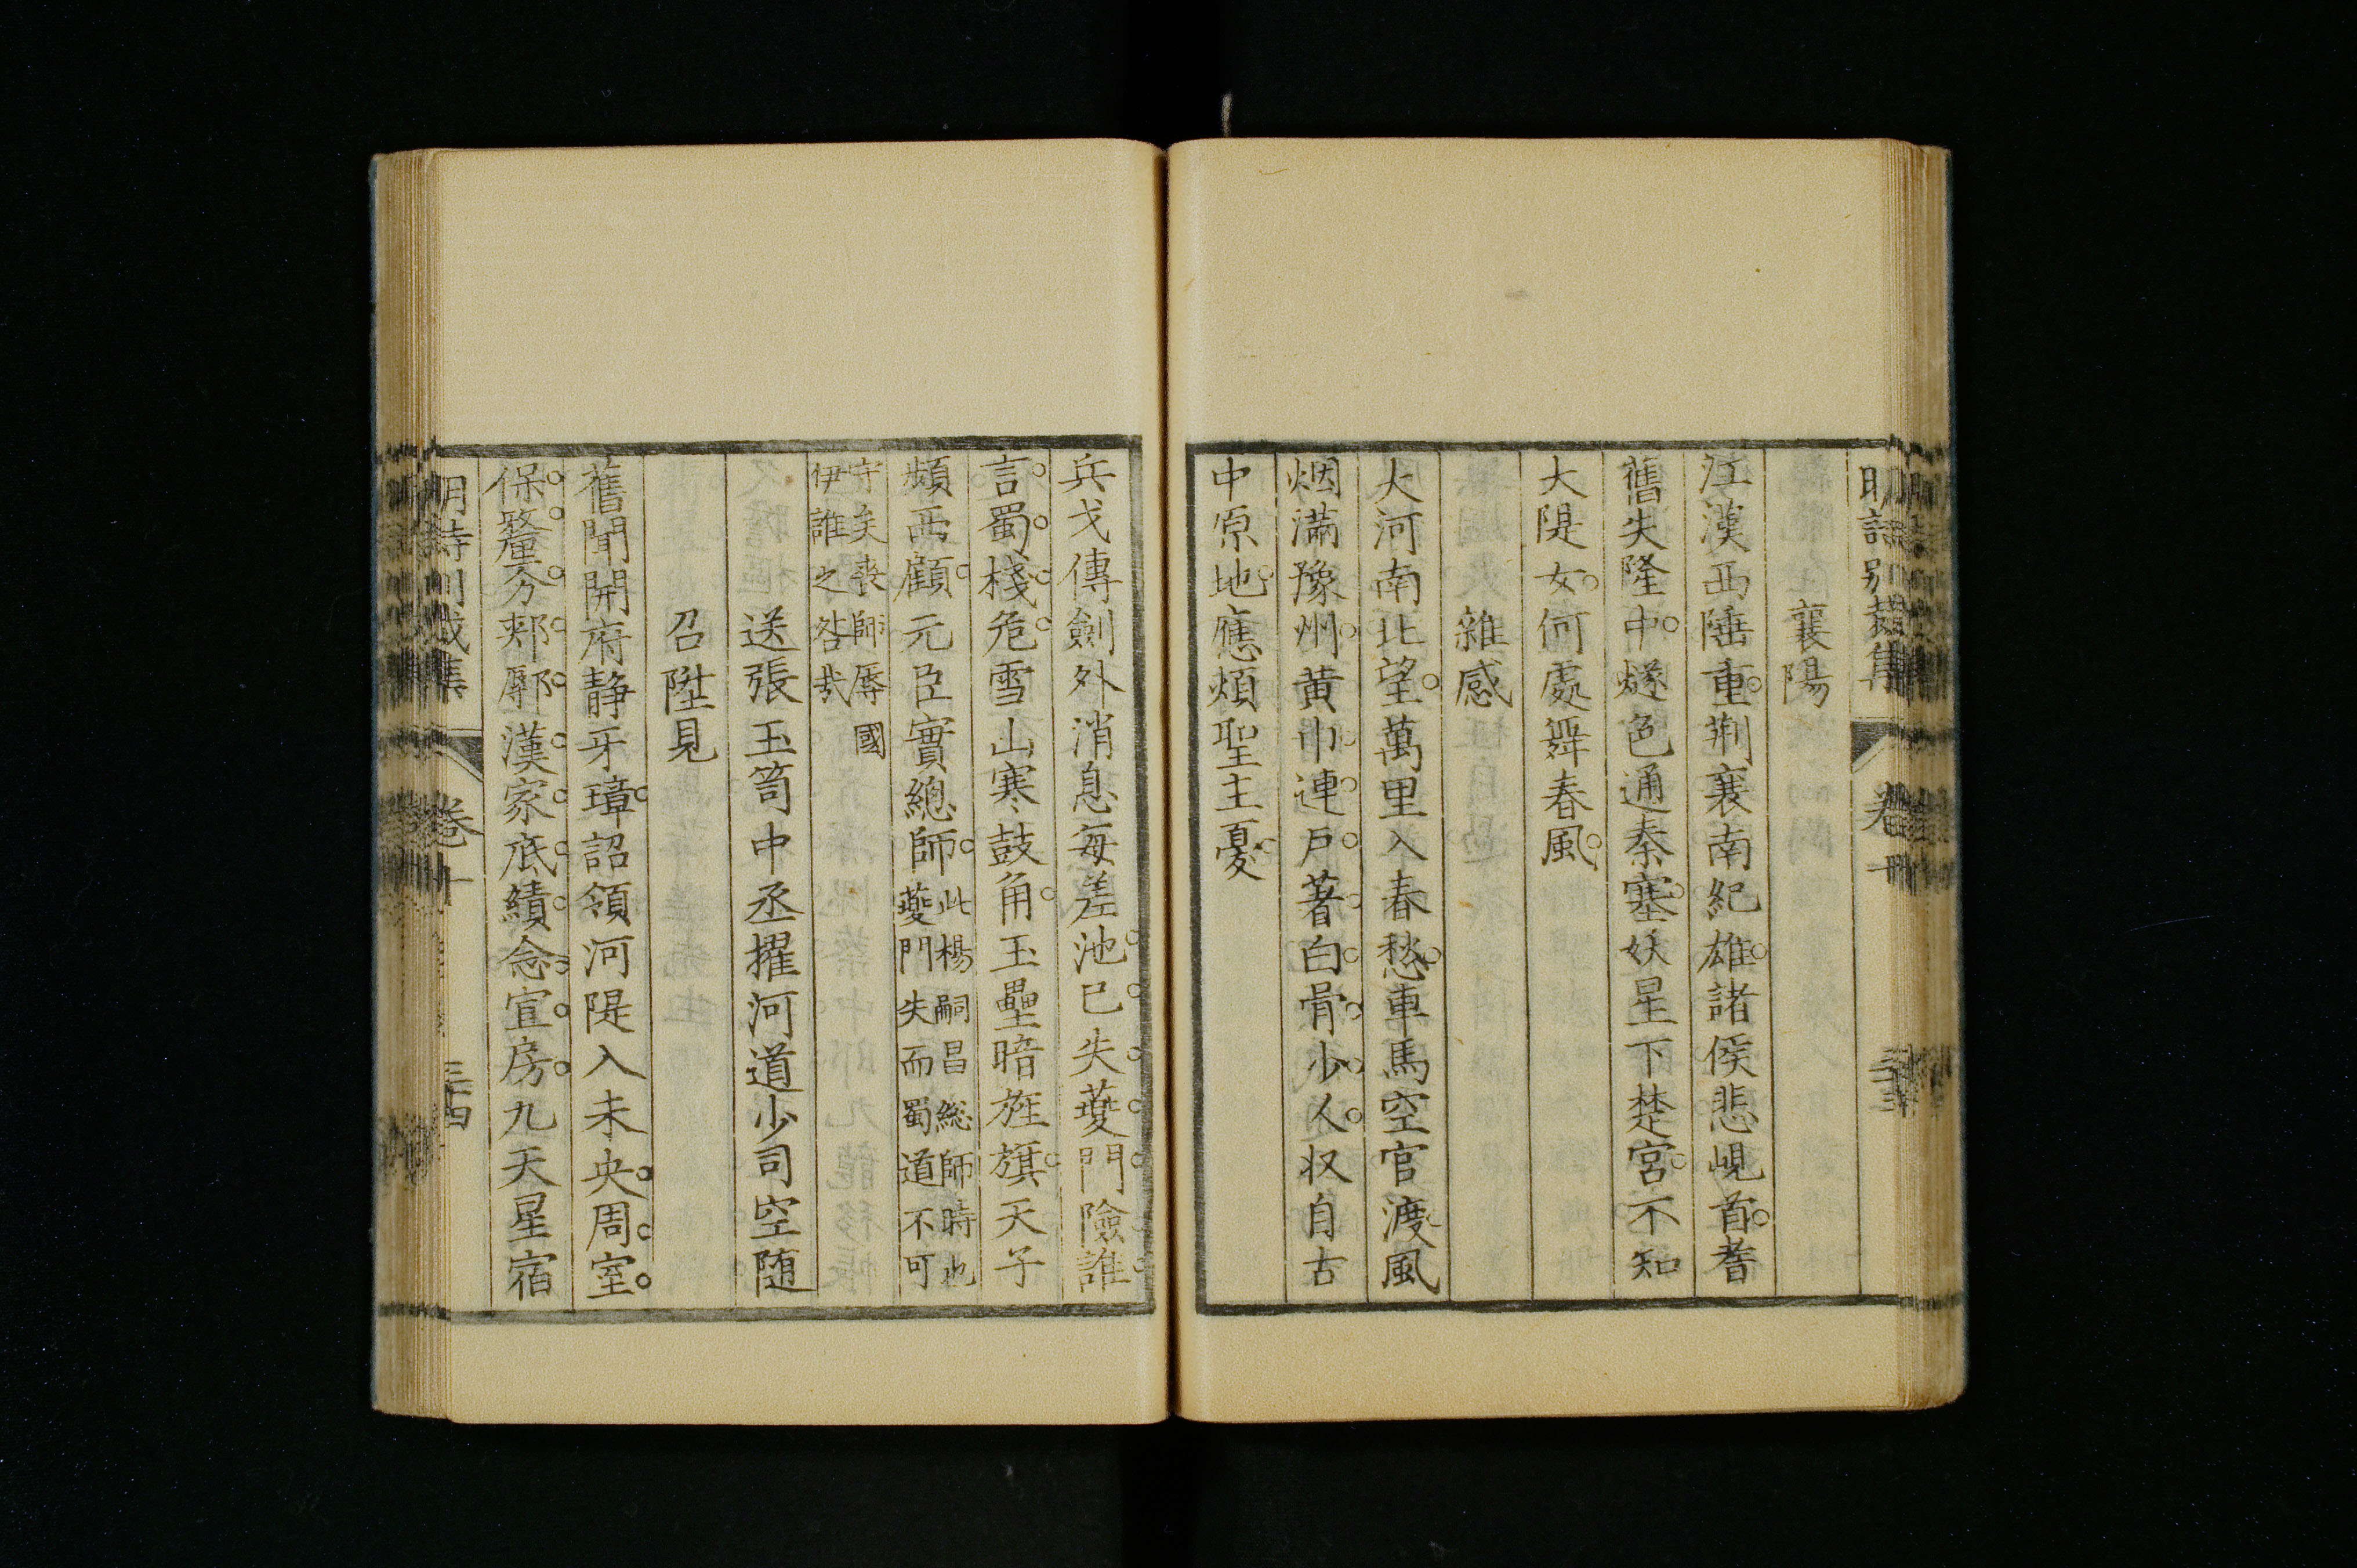 明詩別裁集 卷十
襄陽
江漢西陲重荆襄南紀雄諸侯悲峴首耆
舊失隆中燧色通秦塞妖星下楚宮不知
大隄女何處舞春風
雜感
大河南北望萬里入春愁車馬空官渡風
烟滿豫州黄巾連戶著白骨少人収自古
中原地應煩聖主憂
兵戈傳劍外消息每差池已失夔門險誰
言蜀棧危雪山寒鼓角玉壘暗旌旗天子
頻西顧元臣實總師此楊嗣昌総師時也
夔門失而蜀道不可
守矣喪師辱國
伊誰之咎哉
送張玉笥中丞擢河道少司空随
召陞見
舊聞開府静牙璋詔領河隄入未央周室
保釐分郟鄏漢家底績念宣房九天星宿
明詩別裁集 卷十 三四